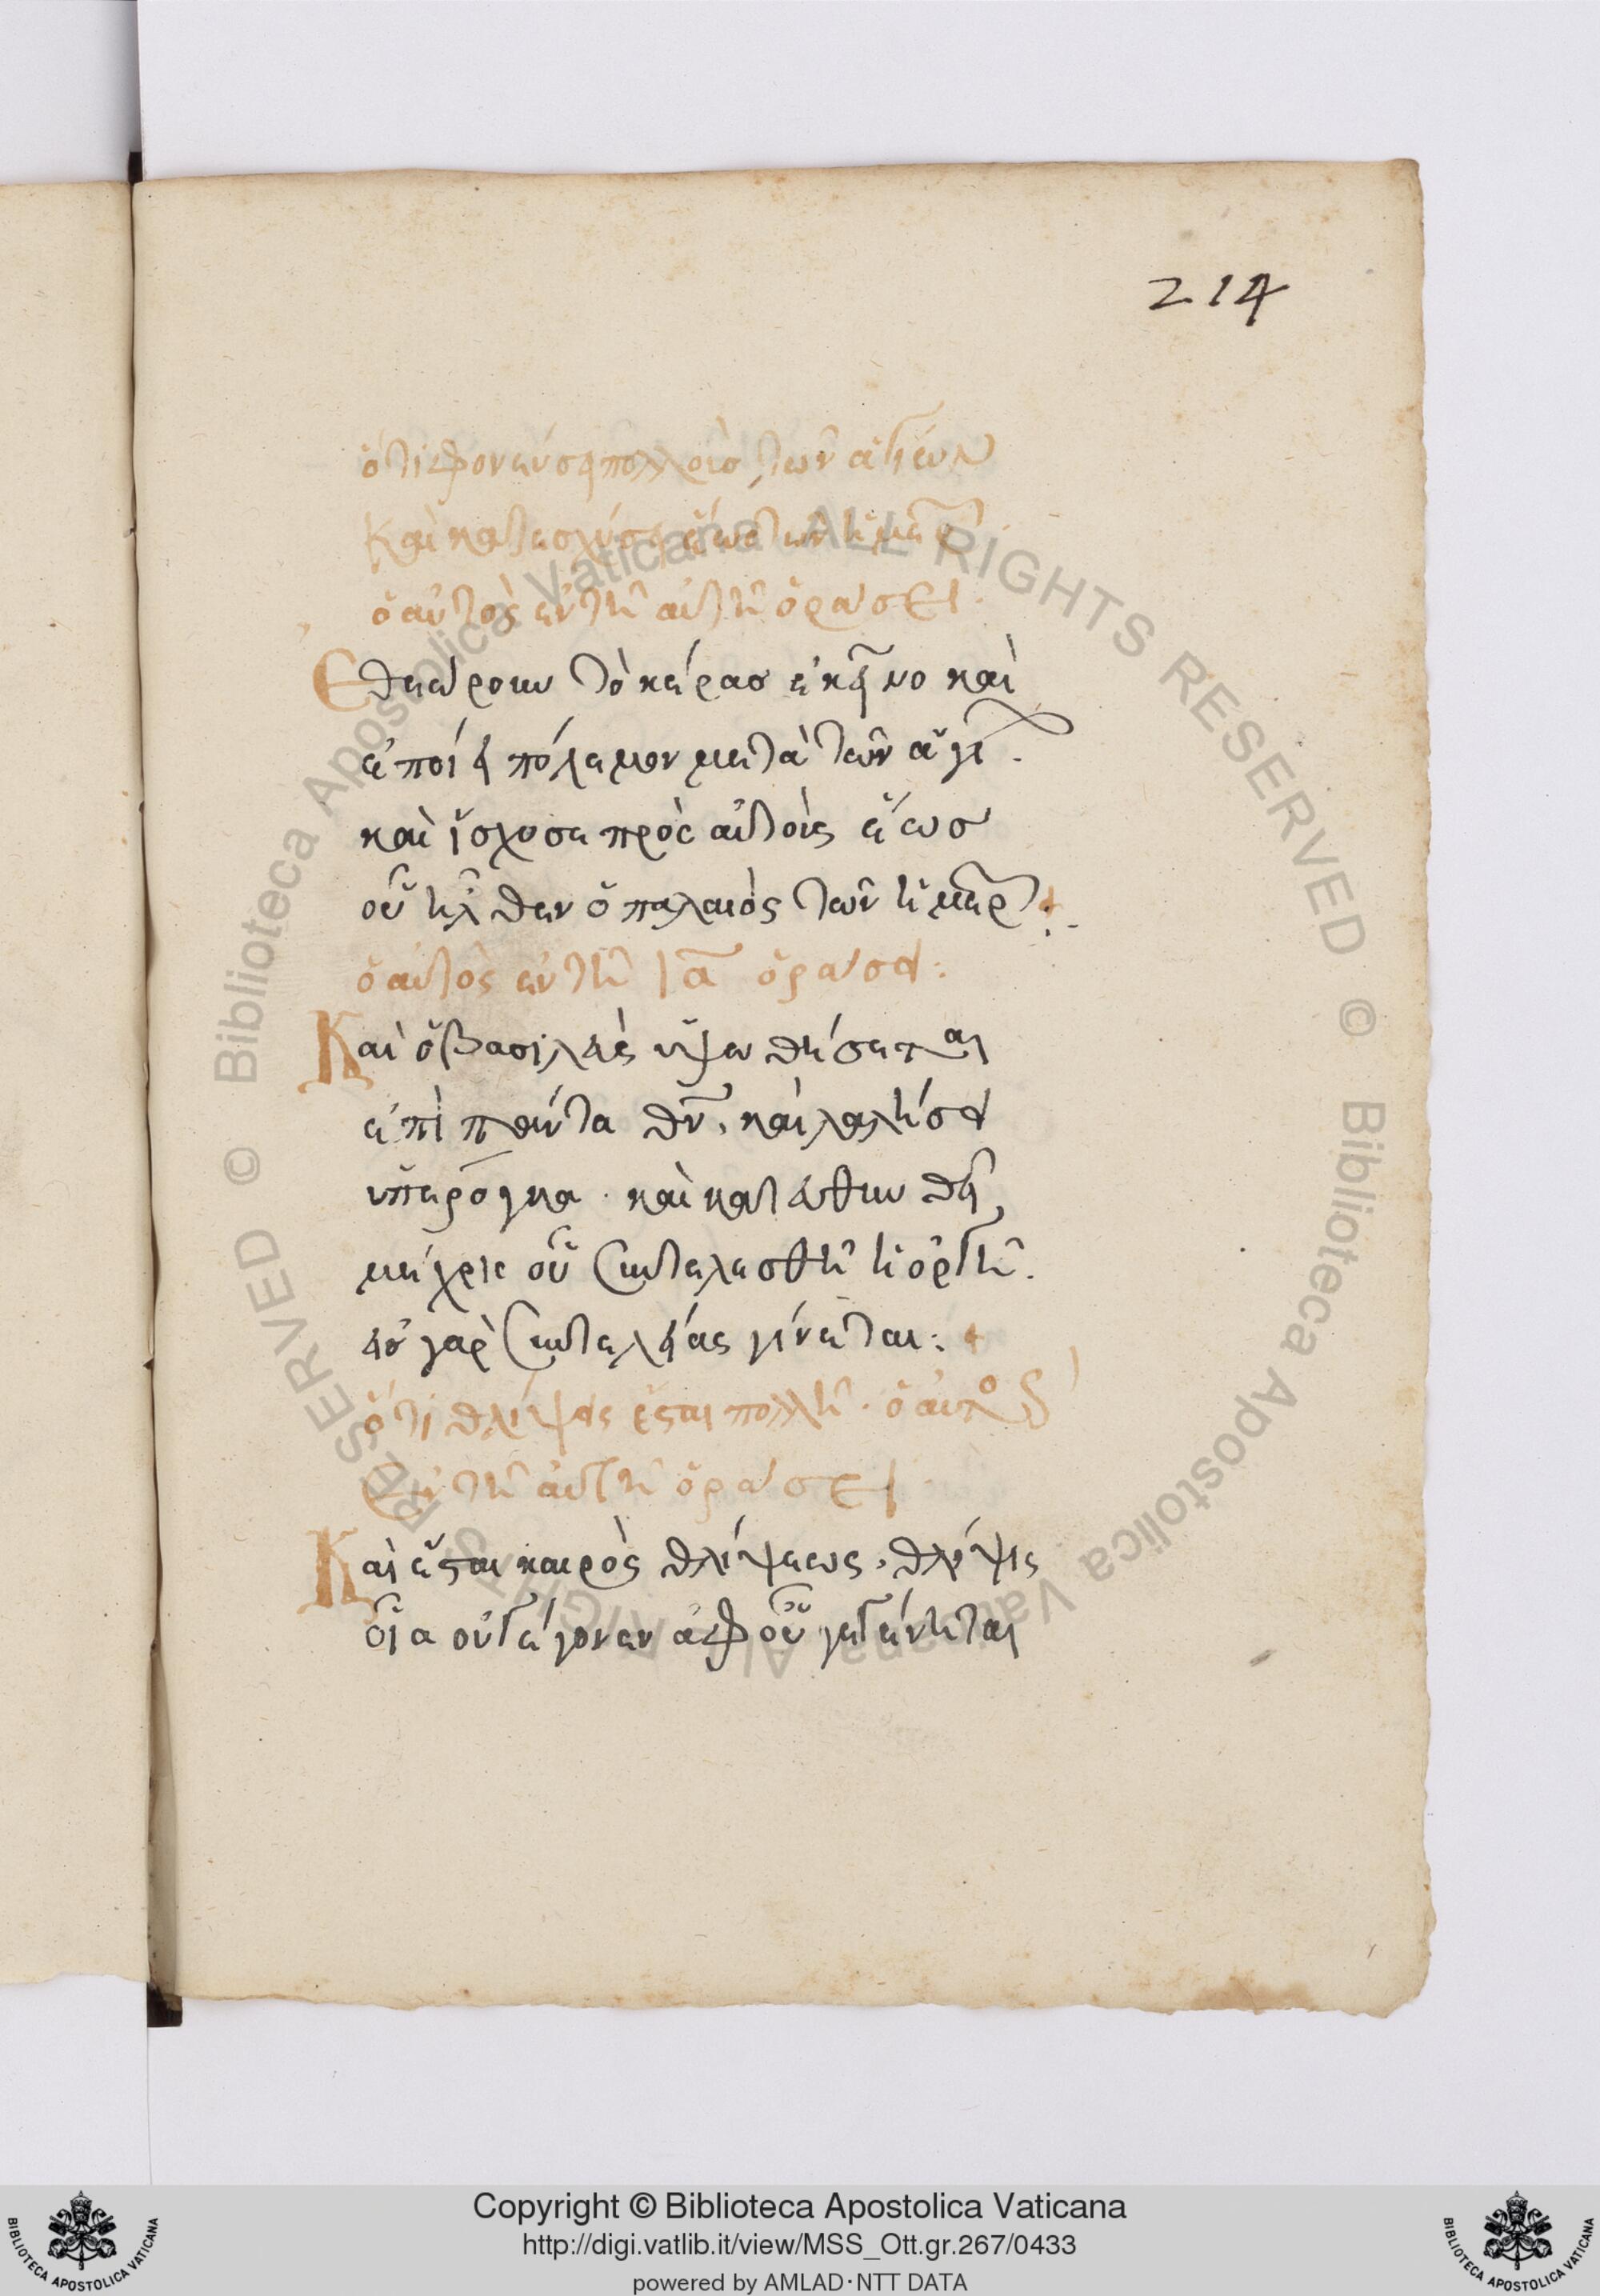 214
ὅτι φονεύσει πολλοὺς τῶν ἁγίων
καὶ κατισχύσει ἕως τῶν ἡμερ
ὁ αὐτὸς ἐν τῆ αὐτῆ ὁράσει.
Εθεώρουν τὸ κέρας ἐκεῖνο καὶ
ἐποίει πόλεμον μετὰ τῶν ἁγί.
καὶ ἴσχυσε πρὸς αὐτοὺς ἕως
οὗ ἦλθεν ὁ παλαιὸς τῶν ἡμερ:
ὁ αὐτὸς ἐν τῆ ια ὁράσει:
Καὶ ὁ βασιλεὺς ὑψωθήσεται
ἐπὶ πάντα θν, καὶ λαλήσει
ὑπέρογκα. καὶ κατευθυνθῆ,
μέχρις οὗ συντελεσθῆ ἡ ὀργή.
εἰς γὰρ συντελείας γίνεται:
ὅτι θλίψις ἔσται πολλὴ. ὁ αὐτὸς
ἐν τῆ αὐτῆ ὁράσει
Καὶ ἔσται καιρὸς θλίψεως, θλίψις
οἵα οὐ γέγονεν ἀφ' οὗ γεγένηται
© Biblioteca Apostolica Vaticana ALL RIGHTS RESERVED © Biblioteca Apostolica Vaticana ALL RIGHTS RESERVED
Copyright © Biblioteca Apostolica Vaticana
http://digi.vatlib.it/view/MSS_Ott.gr.267/0433
powered by AMLAD·NTT DATA
BIBLIOTECA APOSTOLICA VATICANA
BIBLIOTECA APOSTOLICA VATICANA